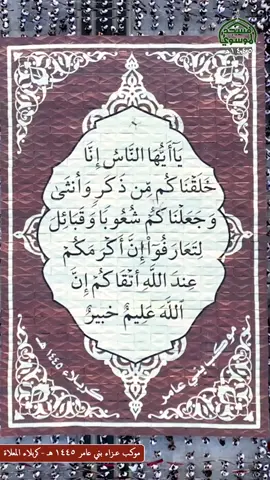 ١٤٤٥هـ
يَٰٓأَيُّهَا النَّاسُ إِنَّا
خَلَقْنَاكُم مِّن ذَكَرٍ وَأُنثَىٰ
وَجَعَلْنَاكُمْ شُعُوبًا وَقَبَائِلَ
لِتَعَارَفُوٓا۟ إِنَّ أَكْرَمَكُمْ
عِندَ اللَّهِ أَتْقَاكُمْ إِنَّ
اللَّهَ عَلِيمٌ خَبِيرٌ
موكب بني عامر
كربلاء ١٤٤٥ هـ
موكب عزاء بني عامر ١٤٤٥ هـ - كربلاء المعلاة